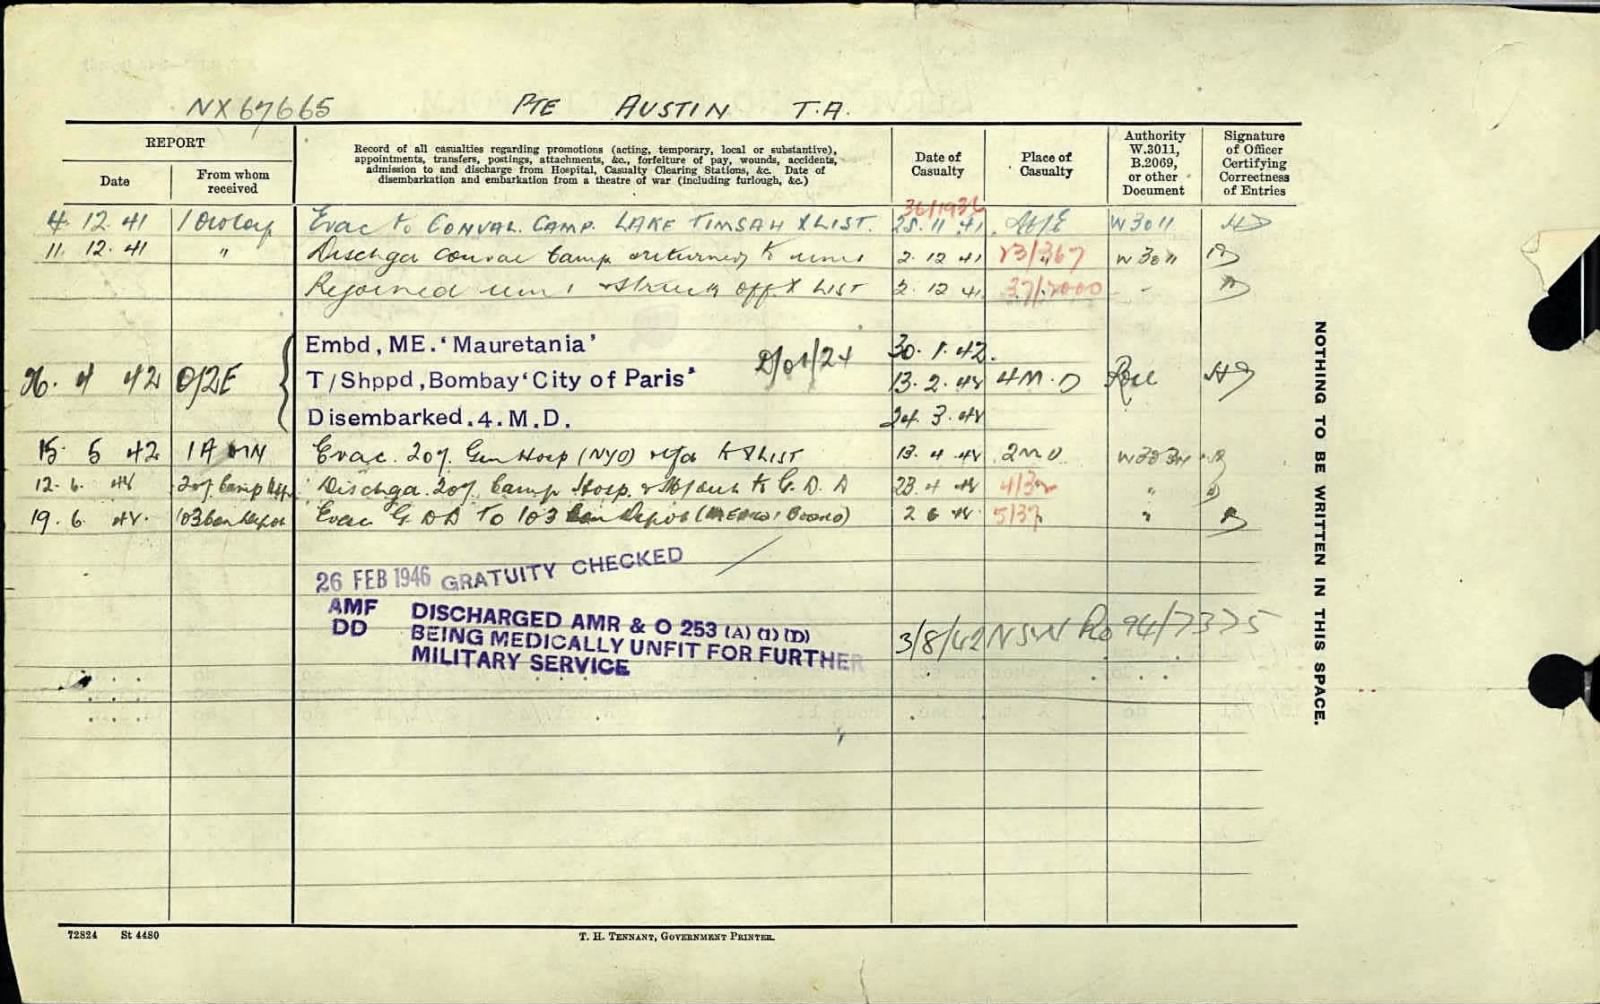 NX67665 PTE AUSTIN T.A.
REPORT
Date
From whom received
Record of all casualties regarding promotions (acting, temporary, local or substantive),
appointments, transfers, postings, attachments, &c., forfeiture of pay, wounds, accidents,
admission to and discharge from Hospital, Casualty Clearing Stations, &c. Date of
disembarkation and embarkation from a theatre of war (including furlough, &c.)
Date of Casualty
Place of Casualty
Authority W.3011, B.2069, or other Document
Signature of Officer Certifying Correctness of Entries
36/1936
4. 12. 41 Evac to CONVAL. CAMP. LAKE TIMSAH X LIST. 28. 11. 41 W3011
11. 12. 41 " Dischgd Conval Camp & returned to unit 2. 12 41 23/367 W3011
Rejoined unit & struck off X LIST 2. 12 41 37/2000
Embd, ME. 'Mauretania' 30. 1. 42.
26. 4 42 O/2E T/Shppd, Bombay 'City of Paris' 13. 2. 42 4M.D Roll
Disembarked. 4. M.D. 24. 3. 42
15. 5 42 Evac. 207. Gen Hosp (NYD) X LIST 13. 4 42
12. 6. 42 207 Camp Dischgd. 207 Camp Hosp. to G.D.D 23. 4 42 "
19. 6 42. 103 Con Depot Evac G DD TO 103 Con Depot 2 6 42 5/37 "
26 FEB 1946 GRATUITY CHECKED
AMF DISCHARGED AMR & O 253 (A) (1) (D)
DD BEING MEDICALLY UNFIT FOR FURTHER
MILITARY SERVICE
3/8/42 NSW Ro 94/7375
NOTHING TO BE WRITTEN IN THIS SPACE.
72824 St 4480
T. H. TENNANT, GOVERNMENT PRINTER.